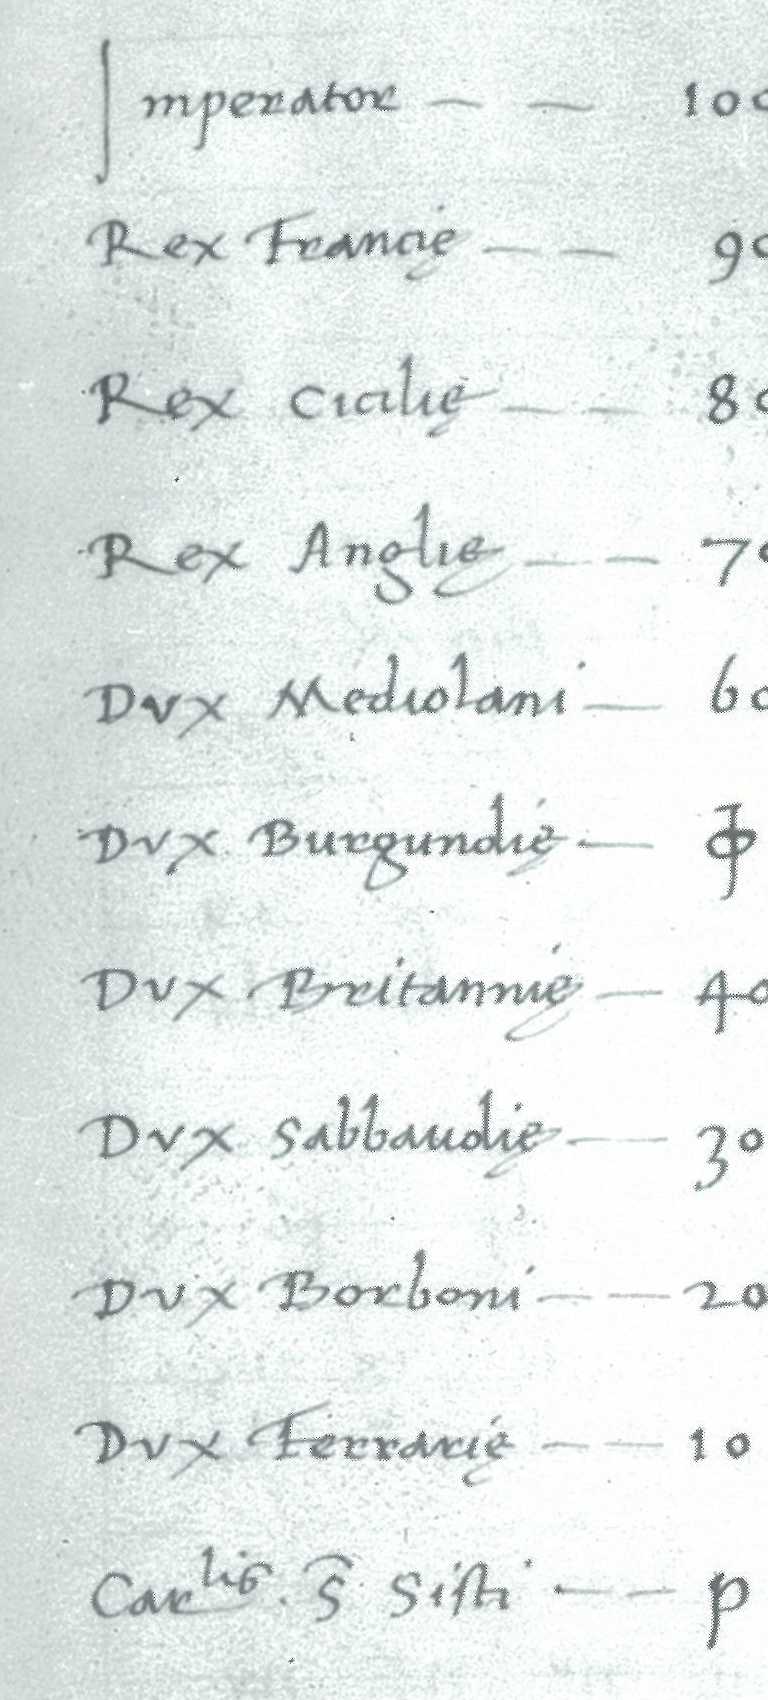 Imperator — — 100
Rex Francię — — 90
Rex Cicilię — — 80
Rex Anglię — — 70
Dvx Mediolani — 60
Dvx Burgundię —
Dvx Britannię — 40
Dvx Sabbaudię — 30
Dvx Borboni — — 20
Dvx Ferrarię — — 10
Carlis. S̄ Sisti — — p